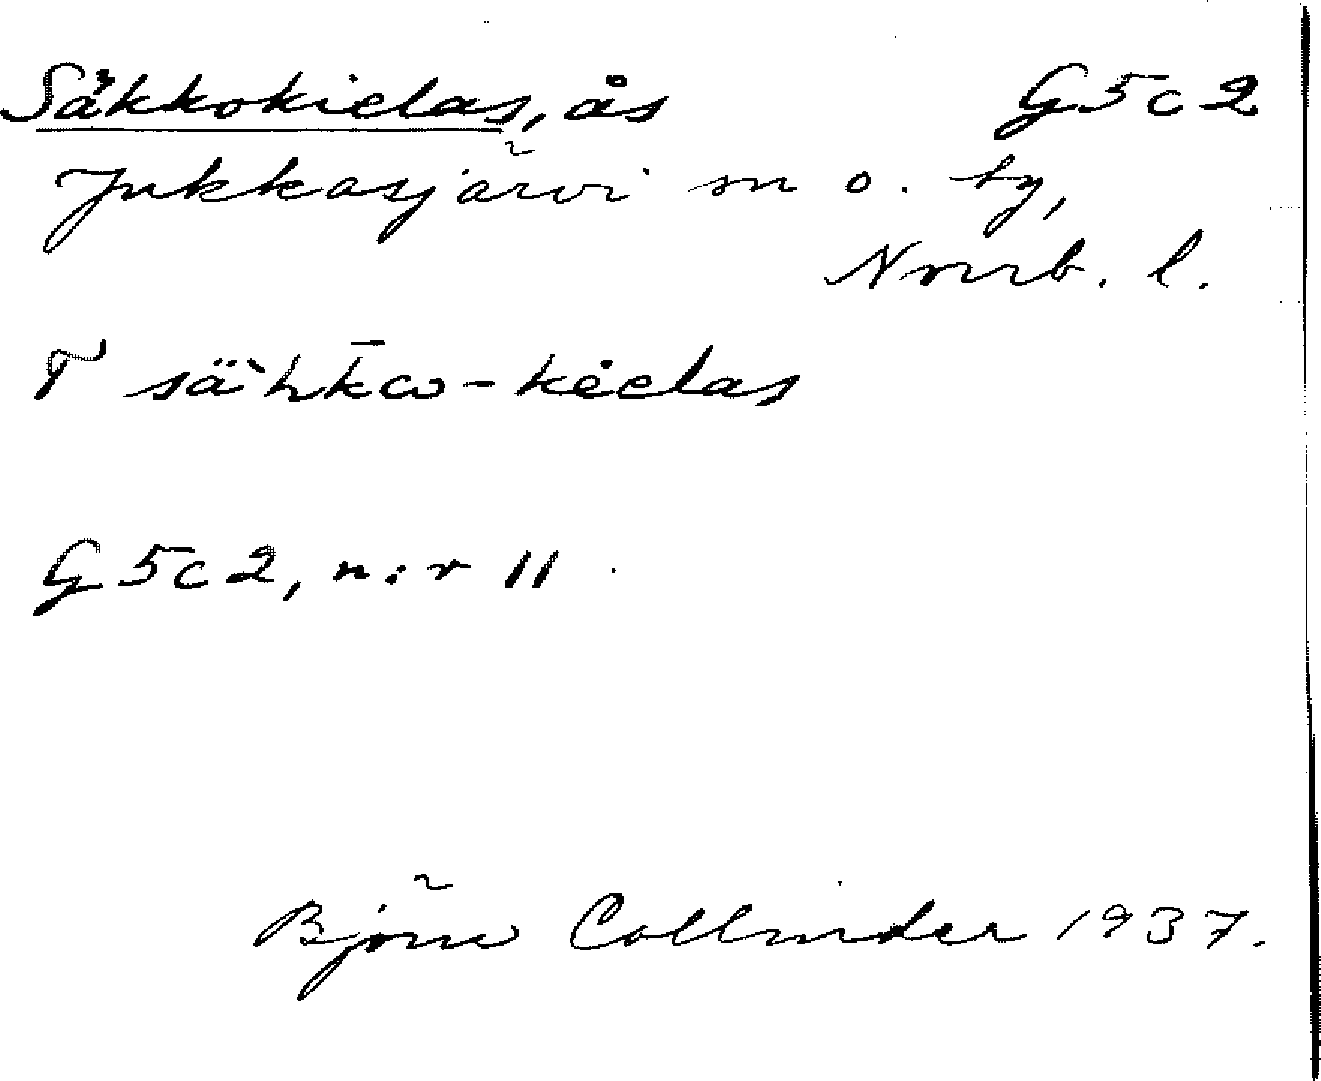 Säkkokielas, ås G5c2
Jukkasjärvi sn o. by,
Norrb. l.
T sä`hk̄ω-kėelas
G5c2, n:r 11
Björn Collinder 1937.